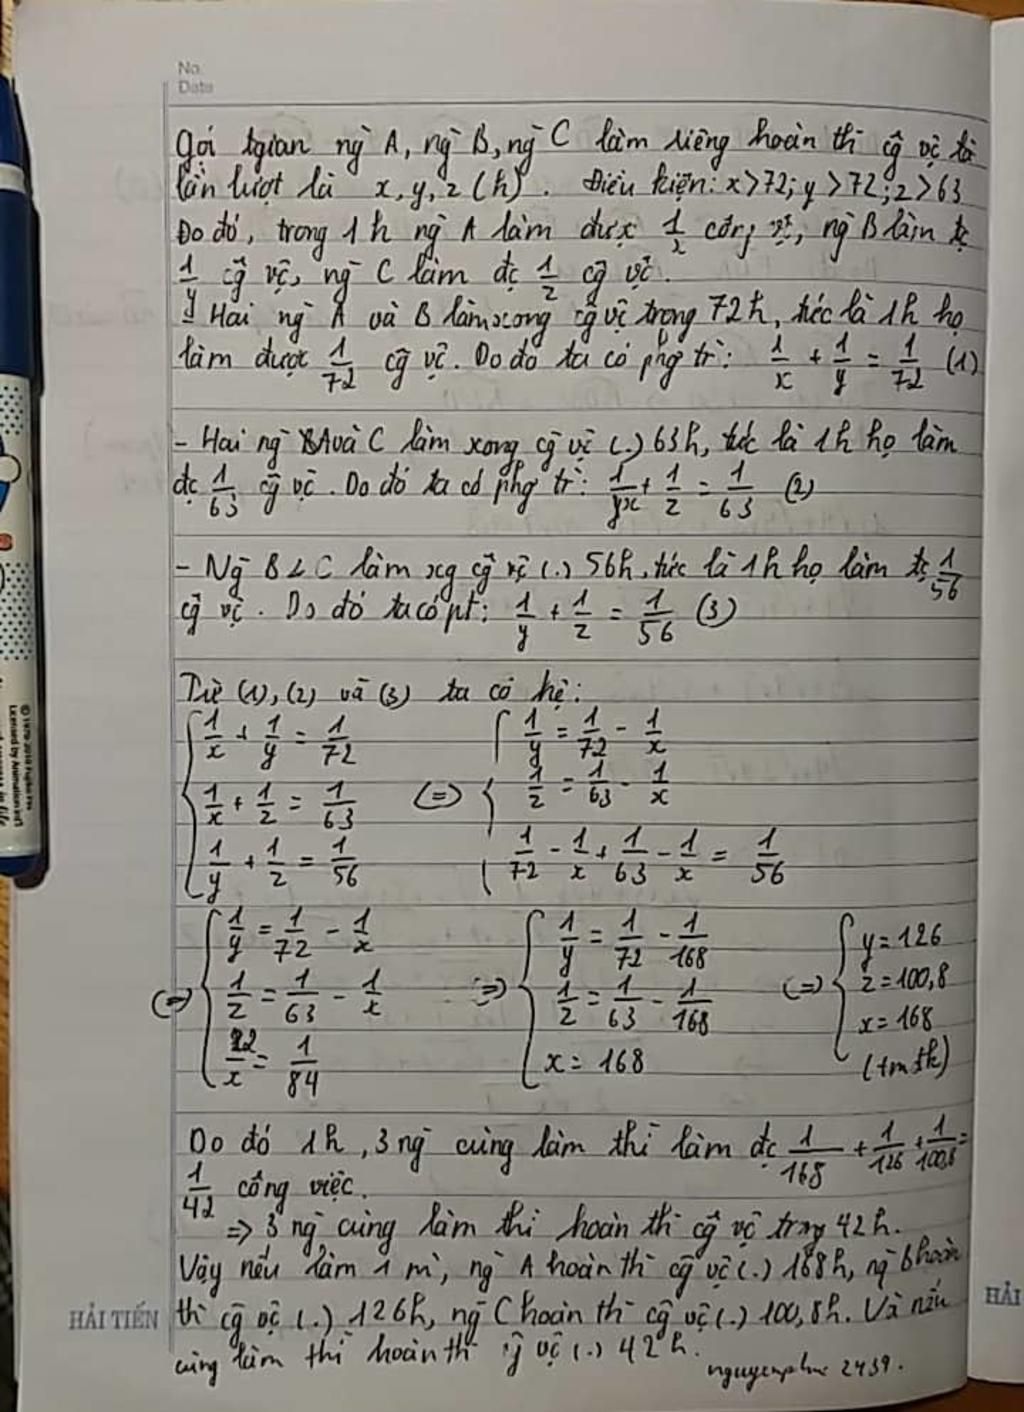 No.
Date
Gọi tgian ng` A, ng` B, ng` C làm riêng hoàn th` cg̃ vc̣ là
lần lượt là x, y, z (h). Điều kiện: x > 72; y > 72; z > 63
Do đó, trong 1h ng` A làm được 1/x công vc̣, ng` B làm đc
1/y cg̃ vc̣, ng` C làm đc 1/z cg̃ vc̣.
- Hai ng` A và B làm xong cg̃ vc̣ trong 72h, tức là 1h họ
làm được 1/72 cg̃ vc̣. Do đó ta có phg tr`: 1/x + 1/y = 1/72 (1)
- Hai ng` A và C làm xong cg̃ vc̣ (.) 63h, tức là 1h họ làm
đc 1/63 cg̃ vc̣. Do đó ta có phg tr`: 1/x + 1/z = 1/63 (2)
- Ng` B & C làm xg cg̃ vc̣ (.) 56h, tức là 1h họ làm đc 1/56
cg̃ vc̣. Do đó ta có pt: 1/y + 1/z = 1/56 (3)
Từ (1), (2) và (3) ta có hệ:
{ 1/x + 1/y = 1/72 { 1/y = 1/72 - 1/x
1/x + 1/z = 1/63 (=) 1/z = 1/63 - 1/x
1/y + 1/z = 1/56 1/72 - 1/x + 1/63 - 1/x = 1/56
{ 1/y = 1/72 - 1/x { 1/y = 1/72 - 1/168 { y = 126
(=) 1/z = 1/63 - 1/x (=) 1/z = 1/63 - 1/168 (=) z = 100,8
2/x = 1/84 x = 168 x = 168
(tmđk)
Do đó 1h, 3 ng` cùng làm thì làm đc 1/168 + 1/126 + 1/100,8 =
1/42 công việc.
=> 3 ng` cùng làm thì hoàn th` cg̃ vc̣ trong 42h.
Vậy nếu làm 1 m`, ng` A hoàn th` cg̃ vc̣ (.) 168h, ng` B hoàn
th` cg̃ vc̣ (.) 126h, ng` C hoàn th` cg̃ vc̣ (.) 100,8h. Và nếu
cùng làm thì hoàn th` cg̃ vc̣ (.) 42h.
HẢI TIẾN
HẢI